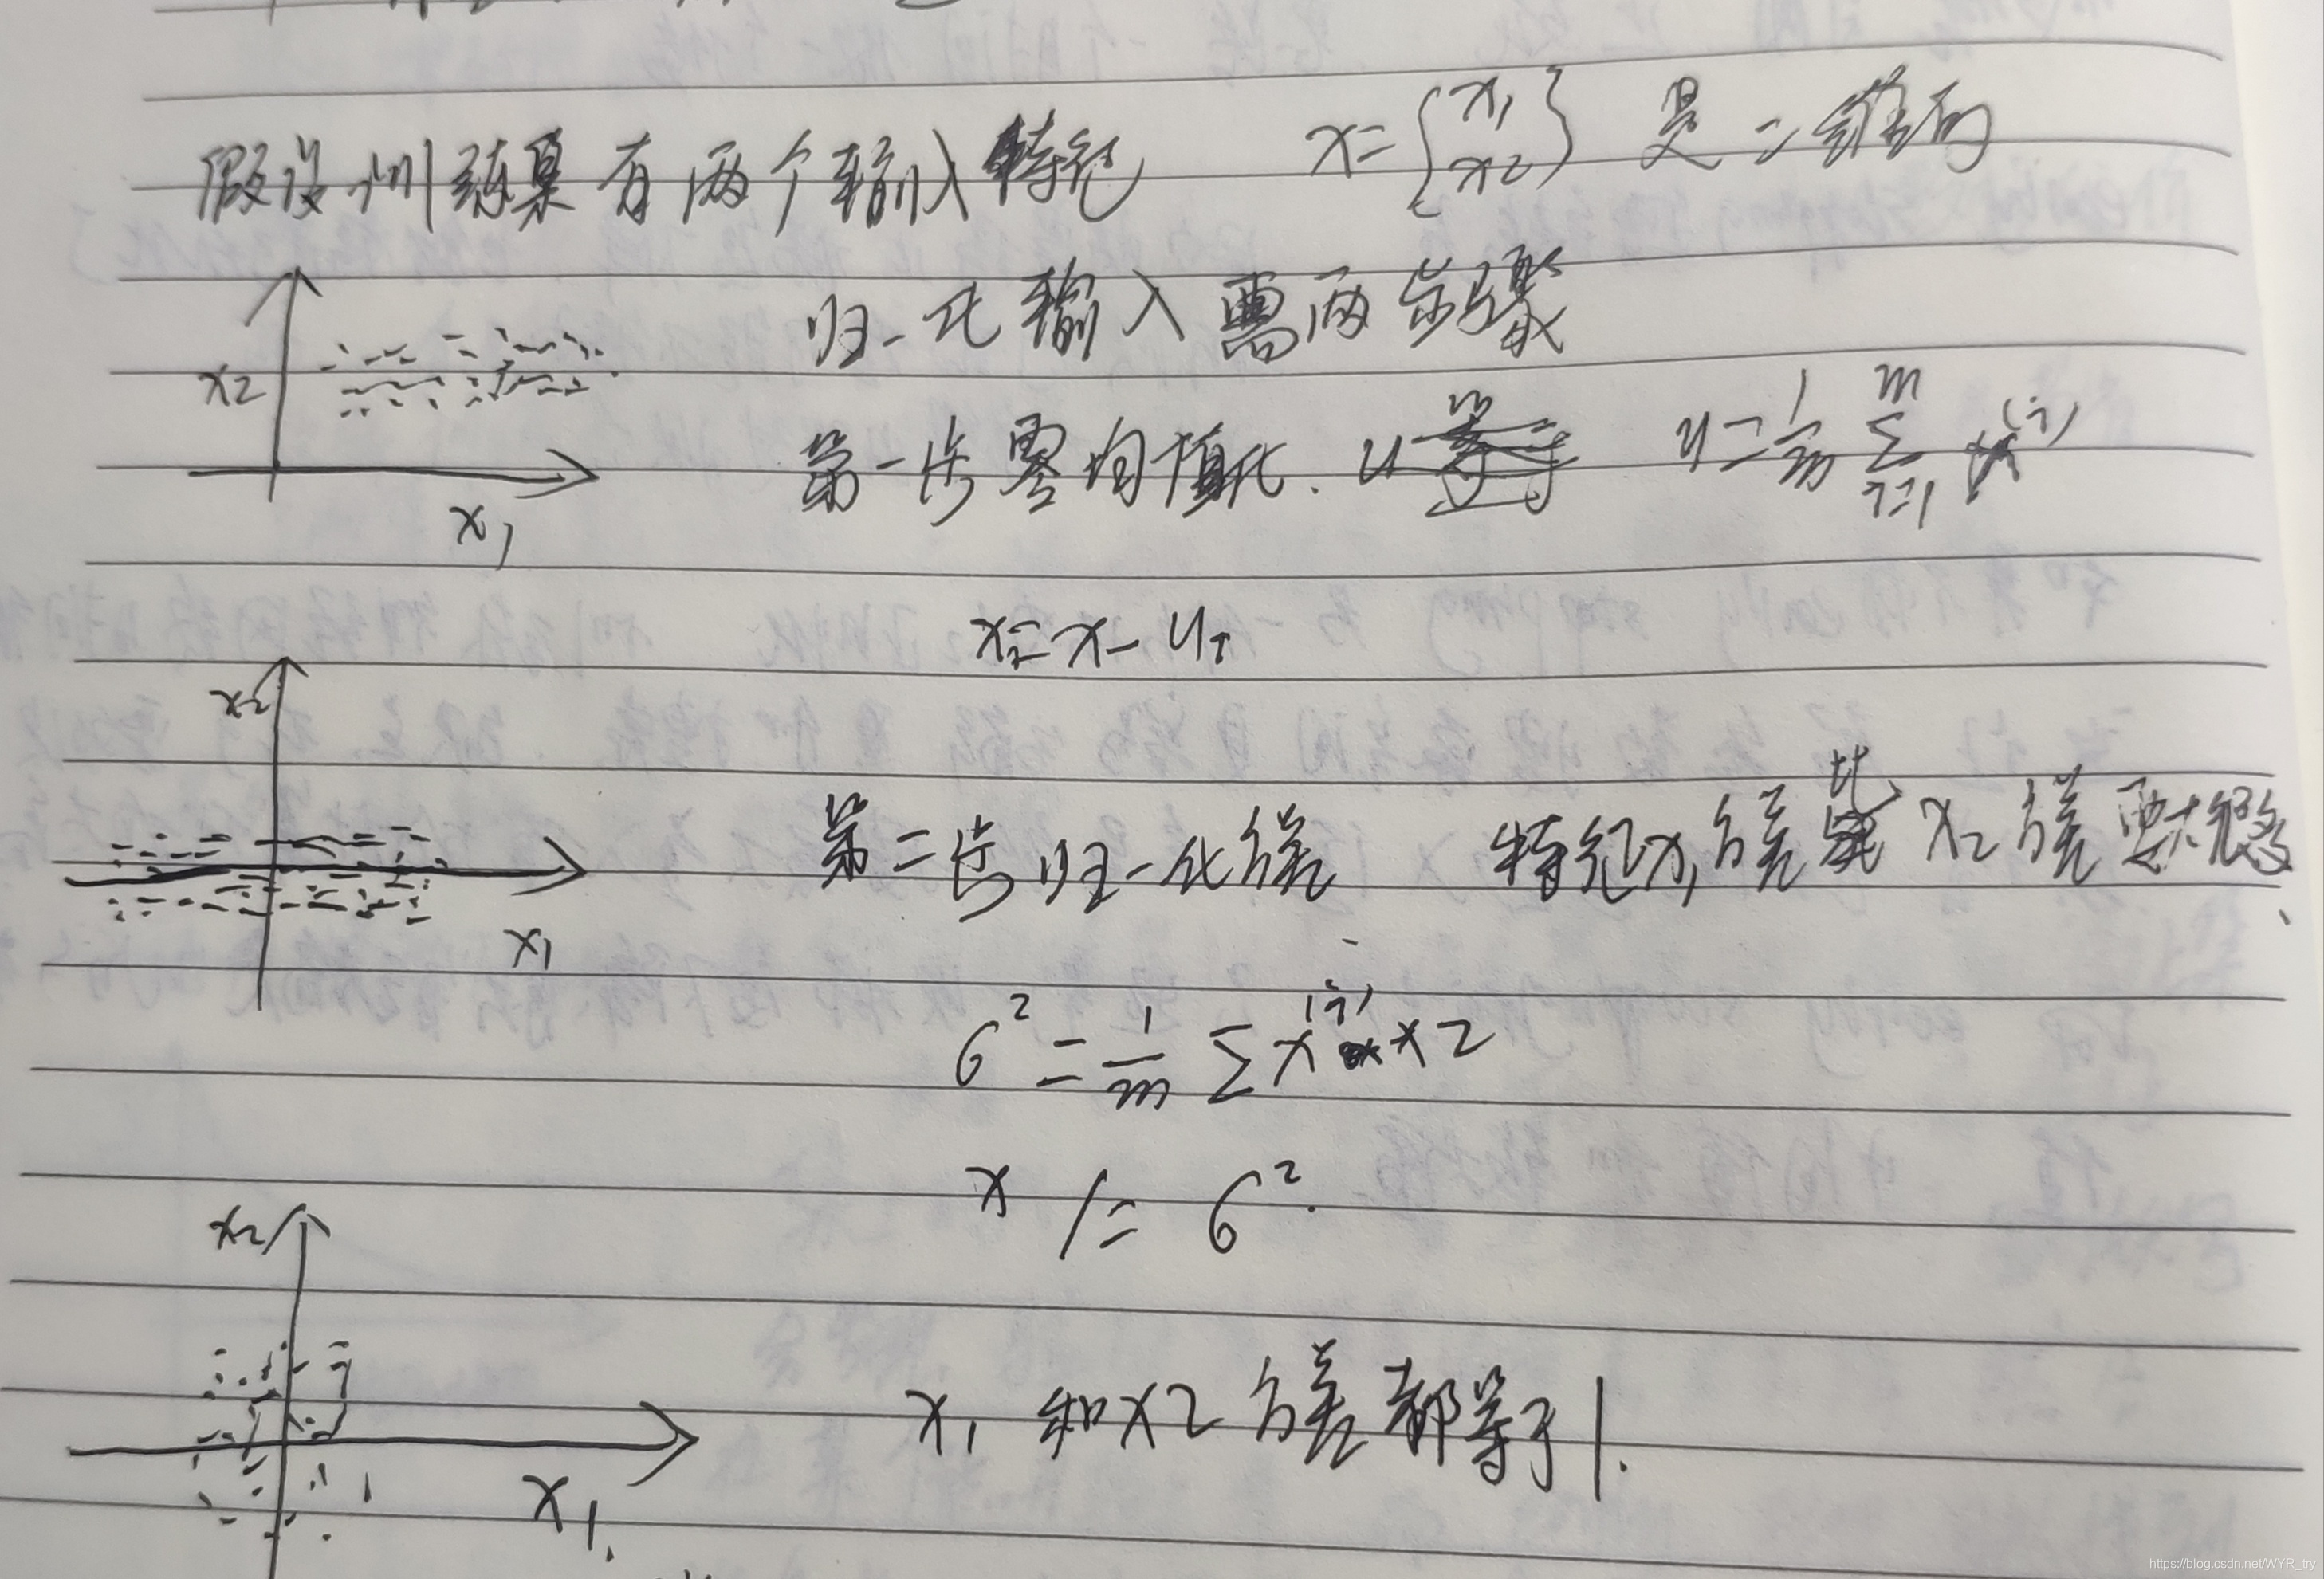 假设训练集有两个输入特征 x={x1 x2} 是二维的
归一化输入需两步骤
x2
第一步零均值化. u u=1/m Σ(i=1..m) x^(i)
x1
x=x-u
x2
第二步归一化方差 特征x1方差比x2方差要大很多
x1
6^2=1/m Σx^(i)**2
x2
x /= 6^2.
x1和x2方差都等于1.
x1.
https://blog.csdn.net/WYR_try